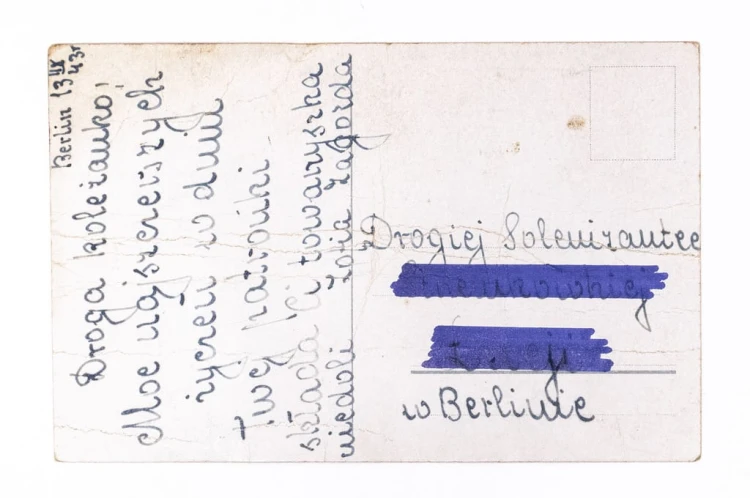 Berlin 13 IX 43r
Droga koleżanko!
Moc najszczerszych
życzeń w dniu
Twej patronki
składa Ci towaryszka
niedoli Zofia Zagorda
Drogiej Solenizantce
w Berlinie